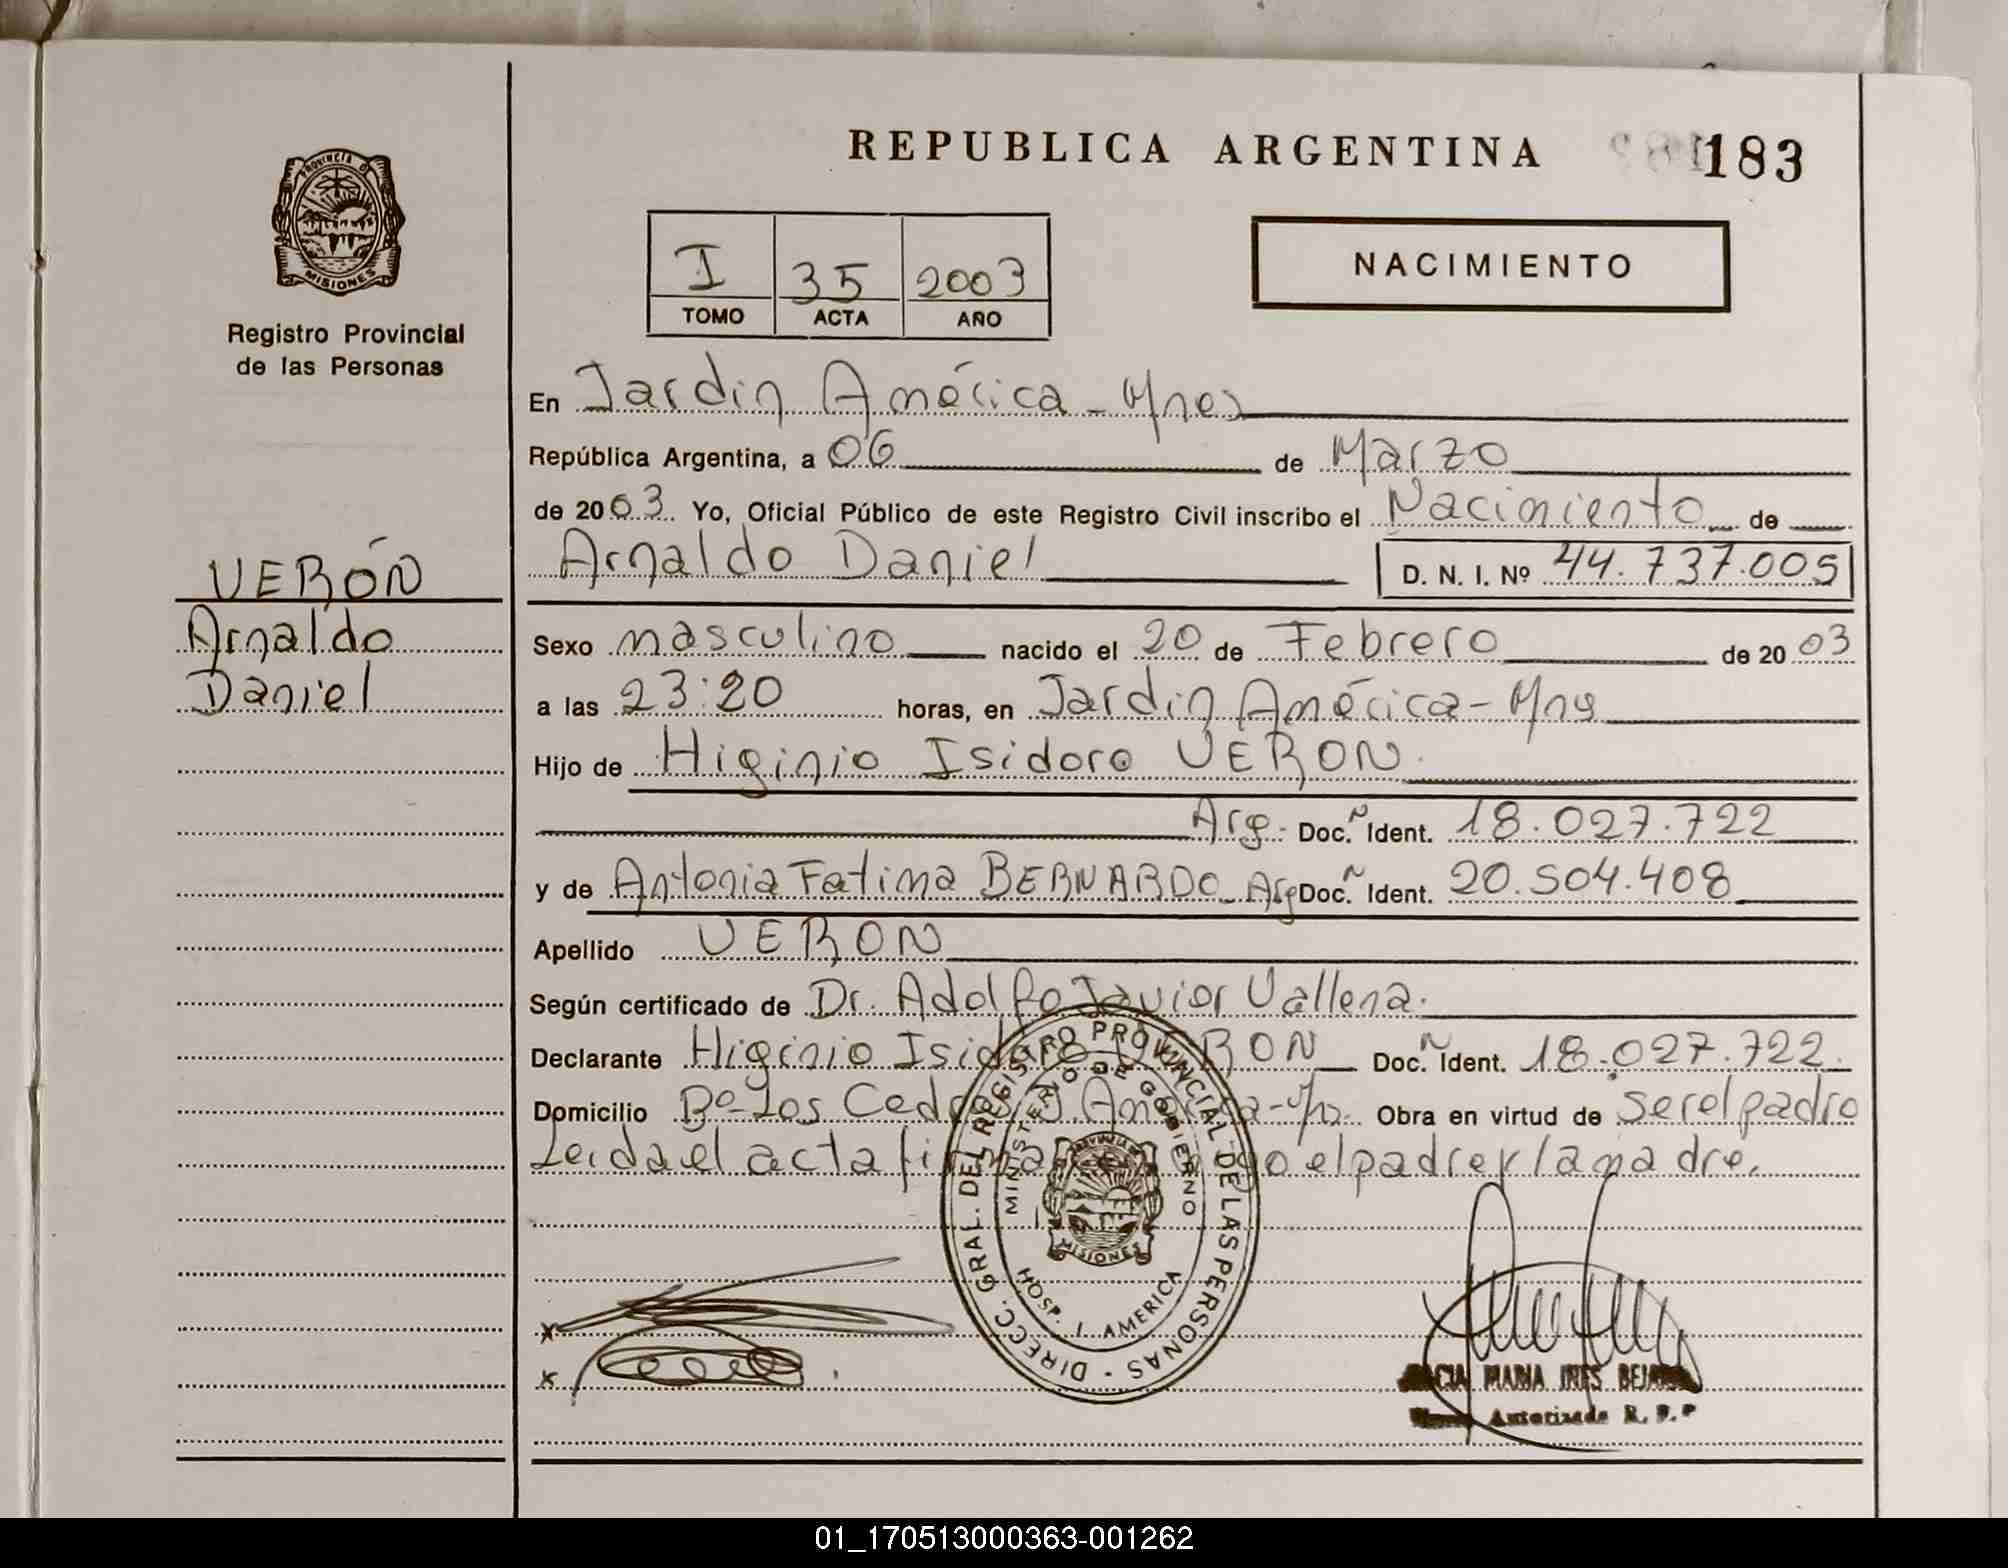 REPUBLICA ARGENTINA
183
PROVINCIA D
MISIONES
Registro Provincial
de las Personas
I 35 2003
TOMO ACTA AÑO
NACIMIENTO
En Jardin América - Mnes
República Argentina, a 06 de Marzo
de 2003. Yo, Oficial Público de este Registro Civil inscribo el Nacimiento de
Arnaldo Daniel D. N. I. Nº 44.737.005
VERÓN
Arnaldo
Daniel
Sexo masculino nacido el 20 de Febrero de 2003
a las 23:20 horas, en Jardin América - Mns
Hijo de Higinio Isidoro VERON.
Arg. Doc. Ident. 18.027.722
y de Antonia Fatima BERNARDO Arg Doc. Ident. 20.504.408
Apellido VERON
Según certificado de Dr. Adolfo Javier Vallena.
Declarante Higinio Isidoro VERON Doc. Ident. 18.027.722.
Domicilio Bº Los Cedros J. América - Mns. Obra en virtud de ser el padre
Leida el acta firma el padre y la madre.
DIRECC. GRAL. DEL REGISTRO PROVINCIAL DE LAS PERSONAS -
MINISTERIO DE GOBIERNO
PROVINCIA
MISIONES
HOSP. J. AMERICA
x
x
MARIA INES
Autorizada R. P. P
01_170513000363-001262